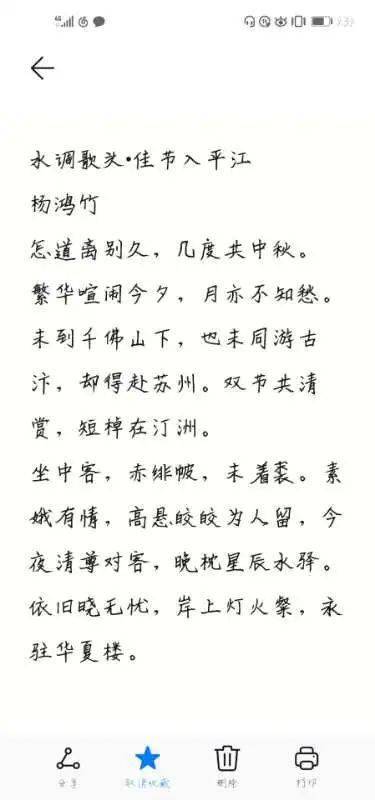 9:39
水调歌头•佳节入平江
杨鸿竹
怎道离别久，几度共中秋。
繁华喧闹今夕，月亦不知愁。
未到千佛山下，也未同游古
汴，却得赴苏州。双节共清
赏，短棹在汀洲。
坐中客，赤绯帔，未着裘。素
娥有情，高悬皎皎为人留，今
夜清尊对客，晚枕星辰水驿。
依旧晓无忧，岸上灯火粲，永
驻华夏楼。
分享
取消收藏
删除
打印